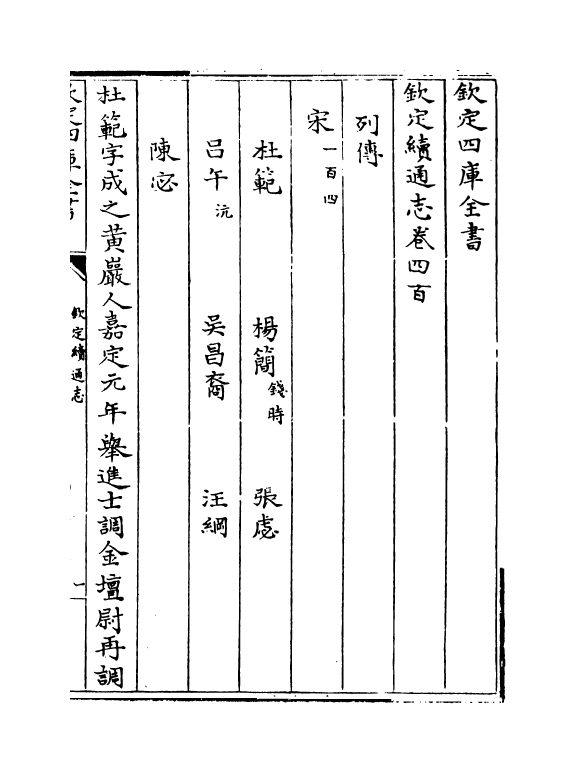 欽定四庫全書
欽定續通志卷四百
列傳
宋一百四
杜範　楊簡錢時　張虙
呂午沆　吳昌裔　汪綱
陳宓
杜範字成之黃巖人嘉定元年舉進士調金壇尉再調
欽定四庫全書　欽定續通志　一